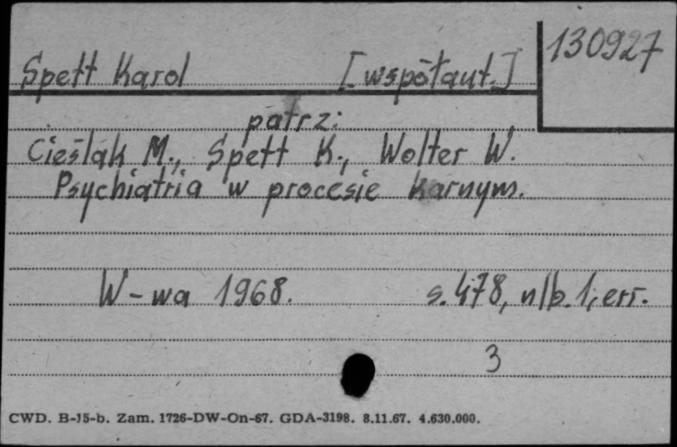 130927
Spett Karol [współaut.]
patrz:
Cieślak M., Spett K., Wolter W.
Psychiatria w procesie karnym.
W-wa 1968. s. 478, nlb. 1, err.
3
CWD. B-15-b. Zam. 1726-DW-On-67. GDA-3198. 8.11.67. 4.630.000.